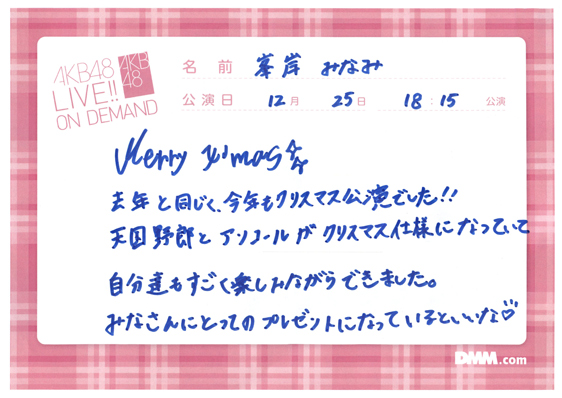 AKB48
LIVE!!
ON DEMAND
AKB
48
名前 峯岸 みなみ
公演日 12月 25日 18:15 公演
Merry X'mas☆☆
去年と同じく、今年もクリスマス公演でした!!
天国野郎とアンコールがクリスマス仕様になっていて
自分達もすごく楽しみながらできました。
みなさんにとってのプレゼントになっているといいな♡
DMM.com